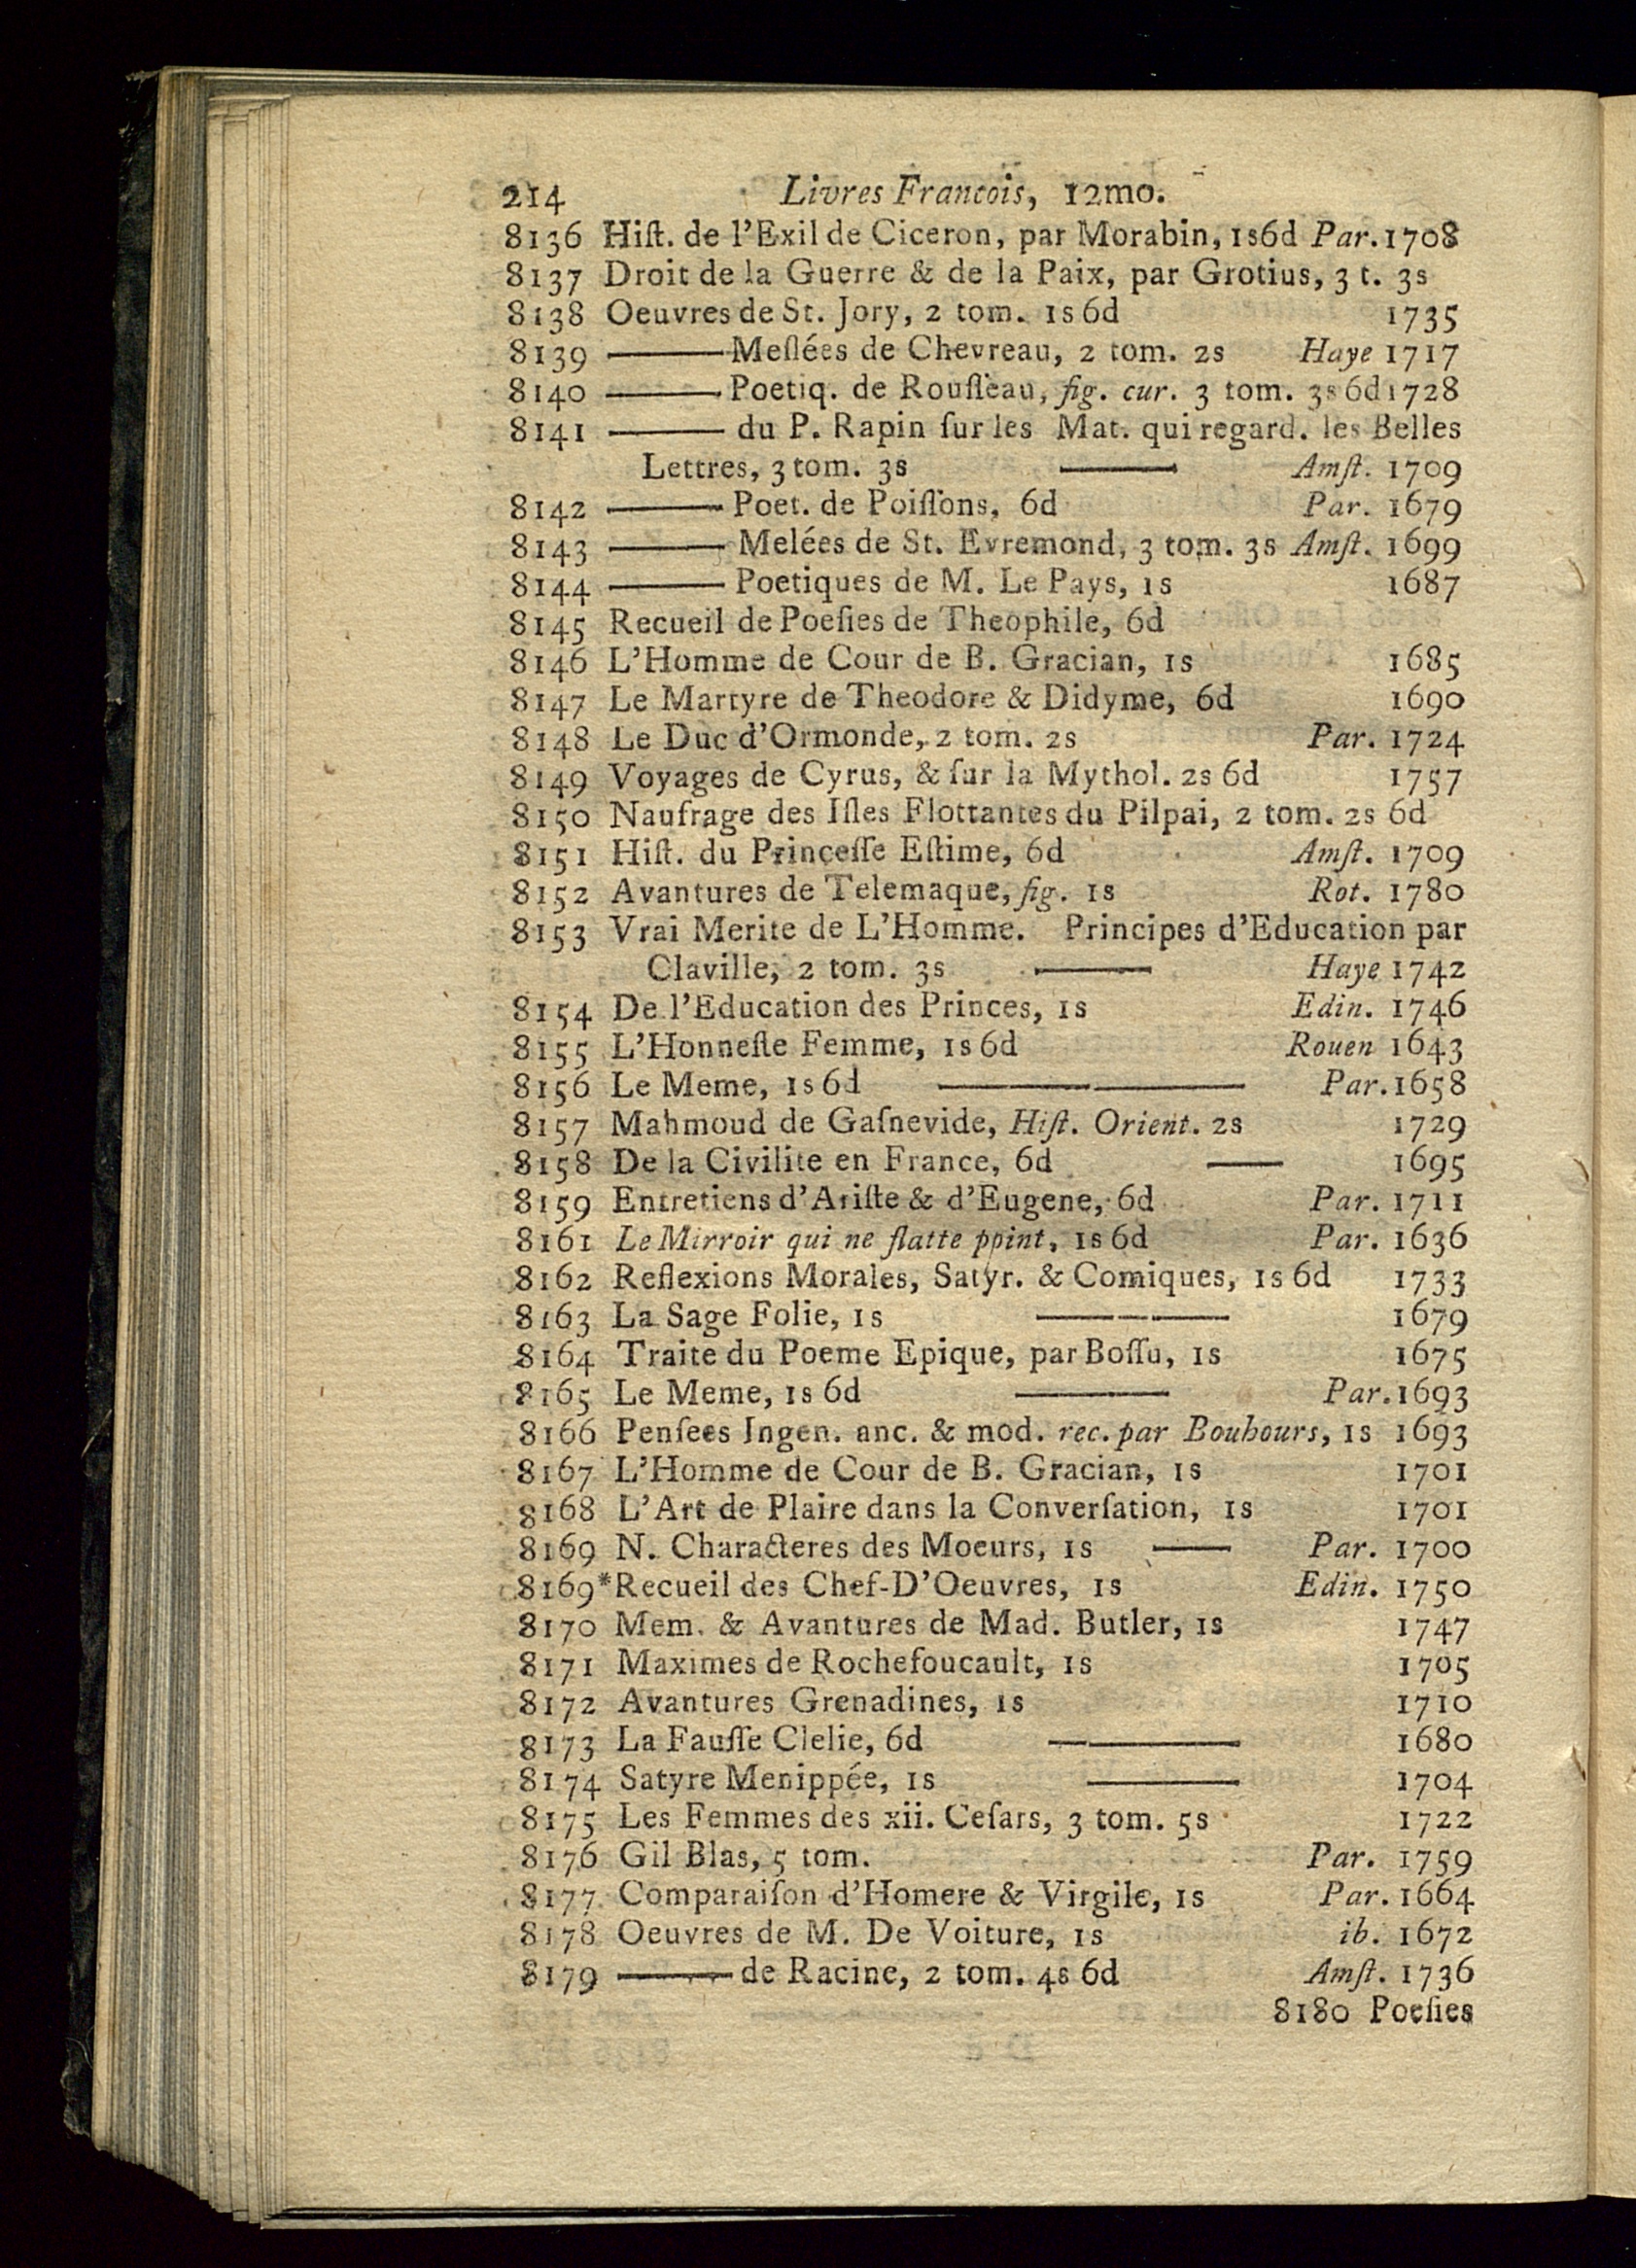 214 Livres Francois, 12mo.
8136 Hiſt. de l'Exil de Ciceron, par Morabin, 1s6d Par. 1708
8137 Droit de la Guerre & de la Paix, par Grotius, 3 t. 3s
8138 Oeuvres de St. Jory, 2 tom. 1s 6d 1735
8139 ——— Meſlées de Chevreau, 2 tom. 2s Haye 1717
8140 ——— Poetiq. de Rouſſeau, fig. cur. 3 tom. 3s 6d 1728
8141 ——— du P. Rapin ſur les Mat. qui regard. les Belles
Lettres, 3 tom. 3s ——— Amſt. 1709
8142 ——— Poet. de Poiſſons, 6d Par. 1679
8143 ——— Melées de St. Evremond, 3 tom. 3s Amſt. 1699
8144 ——— Poetiques de M. Le Pays, 1s 1687
8145 Recueil de Poeſies de Theophile, 6d
8146 L'Homme de Cour de B. Gracian, 1s 1685
8147 Le Martyre de Theodore & Didyme, 6d 1690
8148 Le Duc d'Ormonde, 2 tom. 2s Par. 1724
8149 Voyages de Cyrus, & ſur la Mythol. 2s 6d 1757
8150 Naufrage des Iſles Flottantes du Pilpai, 2 tom. 2s 6d
8151 Hiſt. du Princeſſe Eſtime, 6d Amſt. 1709
8152 Avantures de Telemaque, fig. 1s Rot. 1780
8153 Vrai Merite de L'Homme. Principes d'Education par
Claville, 2 tom. 3s ——— Haye 1742
8154 De l'Education des Princes, 1s Edin. 1746
8155 L'Honneſte Femme, 1s 6d Rouen 1643
8156 Le Meme, 1s 6d ——— ——— Par. 1658
8157 Mahmoud de Gaſnevide, Hiſt. Orient. 2s 1729
8158 De la Civilite en France, 6d —— 1695
8159 Entretiens d'Ariſte & d'Eugene, 6d Par. 1711
8161 Le Mirroir qui ne flatte ppint, 1s 6d Par. 1636
8162 Reflexions Morales, Satyr. & Comiques, 1s 6d 1733
8163 La Sage Folie, 1s ——— 1679
8164 Traite du Poeme Epique, par Boſſu, 1s 1675
8165 Le Meme, 1s 6d ——— Par. 1693
8166 Penſees Ingen. anc. & mod. rec. par Bouhours, 1s 1693
8167 L'Homme de Cour de B. Gracian, 1s 1701
8168 L'Art de Plaire dans la Converſation, 1s 1701
8169 N. Characteres des Moeurs, 1s —— Par. 1700
8169* Recueil des Chef-D'Oeuvres, 1s Edin. 1750
8170 Mem. & Avantures de Mad. Butler, 1s 1747
8171 Maximes de Rochefoucault, 1s 1705
8172 Avantures Grenadines, 1s 1710
8173 La Fauſſe Clelie, 6d ——— 1680
8174 Satyre Menippée, 1s ——— 1704
8175 Les Femmes des xii. Ceſars, 3 tom. 5s 1722
8176 Gil Blas, 5 tom. Par. 1759
8177 Comparaiſon d'Homere & Virgile, 1s Par. 1664
8178 Oeuvres de M. De Voiture, 1s ib. 1672
8179 ——— de Racine, 2 tom. 4s 6d Amſt. 1736
8180 Poeſies